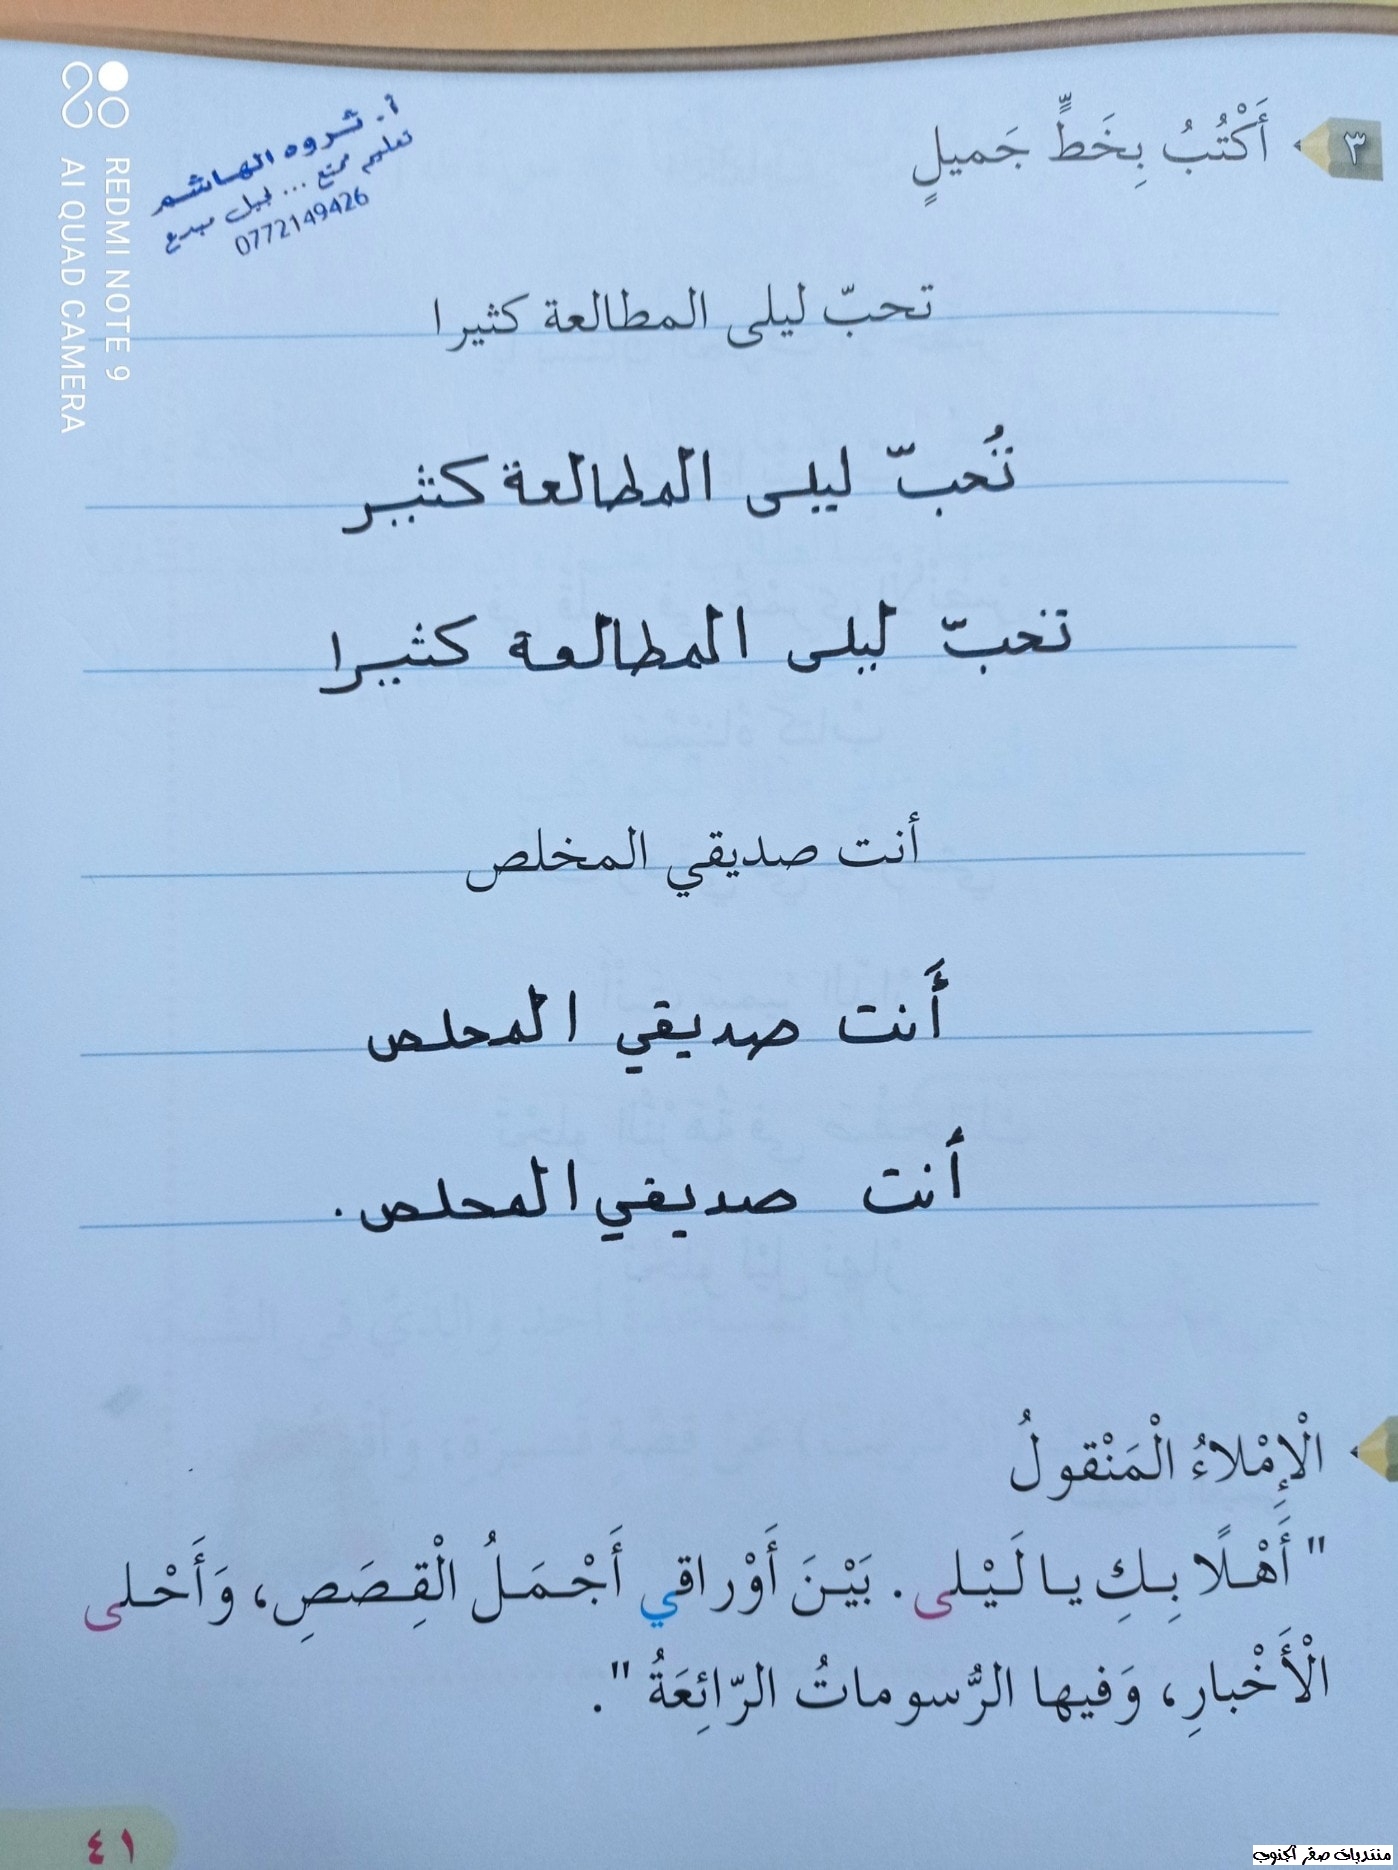 ٣ أَكْتُبُ بِخَطٍّ جَميلٍ
أ. ثروه الهاشم
تعليم ممتع ... لجيل مبدع
0772149426
REDMI NOTE 9
AI QUAD CAMERA
تحبّ ليلى المطالعة كثيرا
تُحبّ ليلى المطالعة كثير
تحبّ ليلى المطالعة كثيرا
أنت صديقي المخلص
أَنت صديقي المحلص
أنت صديقي المحلص.
الْإِمْلاءُ الْمَنْقولُ
" أَهْلًا بِكِ يا لَيْلى. بَيْنَ أَوْراقي أَجْمَلُ الْقِصَصِ، وَأَحْلى
الْأَخْبارِ، وَفيها الرُّسوماتُ الرّائِعَةُ ".
٤١
منتديات صقر الجنوب